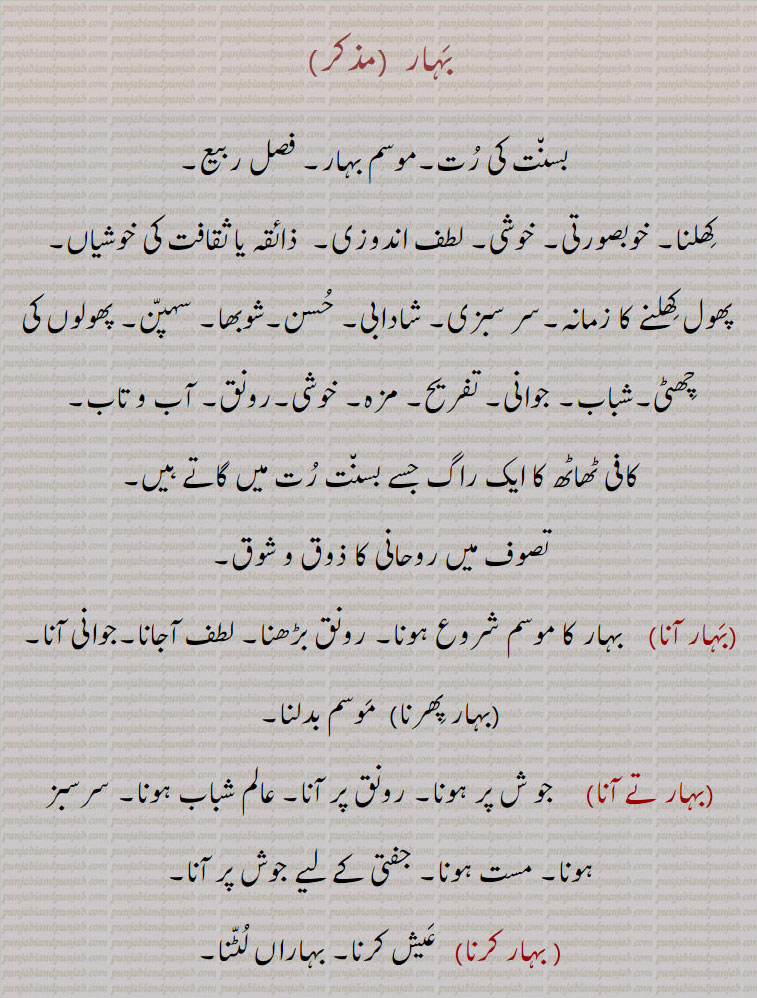 بَہار (مذکر)
بسنّت کی رُت۔موسم بہار۔ فصل ربیع۔
کِھلنا۔ خوبصورتی۔ خوشی۔ لطف اندوزی۔ ذائقہ یا ثقافت کی خوشیاں۔
پھول کِھلنے کا زمانہ۔سر سبزی۔ شادابی۔ حُسن۔شوبھا۔ سہپنّ۔ پھولوں کی
چِھٹی۔شباب۔ جوانی۔ تفریح۔ مزہ۔ خوشی۔رونق۔ آب و تاب۔
کافی ٹھاٹھ کا ایک راگ جسے بسنّت رُت میں گاتے ہیں۔
تصوف میں روحانی کا ذوق و شوق۔
(بَہار آنا) بہار کا موسم شروع ہونا۔ رونق بڑھنا۔ لطف آجانا۔جوانی آنا۔
(بہار پِھرنا) مَوسم بدلنا۔
(بہار تے آنا) جو ش پر ہونا۔ رونق پر آنا۔ عالم شباب ہونا۔ سر سبز
ہونا۔ مست ہونا۔ جفتی کے لیے جوش پر آنا۔
( بہار کرنا) عَیش کرنا۔ بہاراں لُٹّنا۔
punjabiandpunjab.com